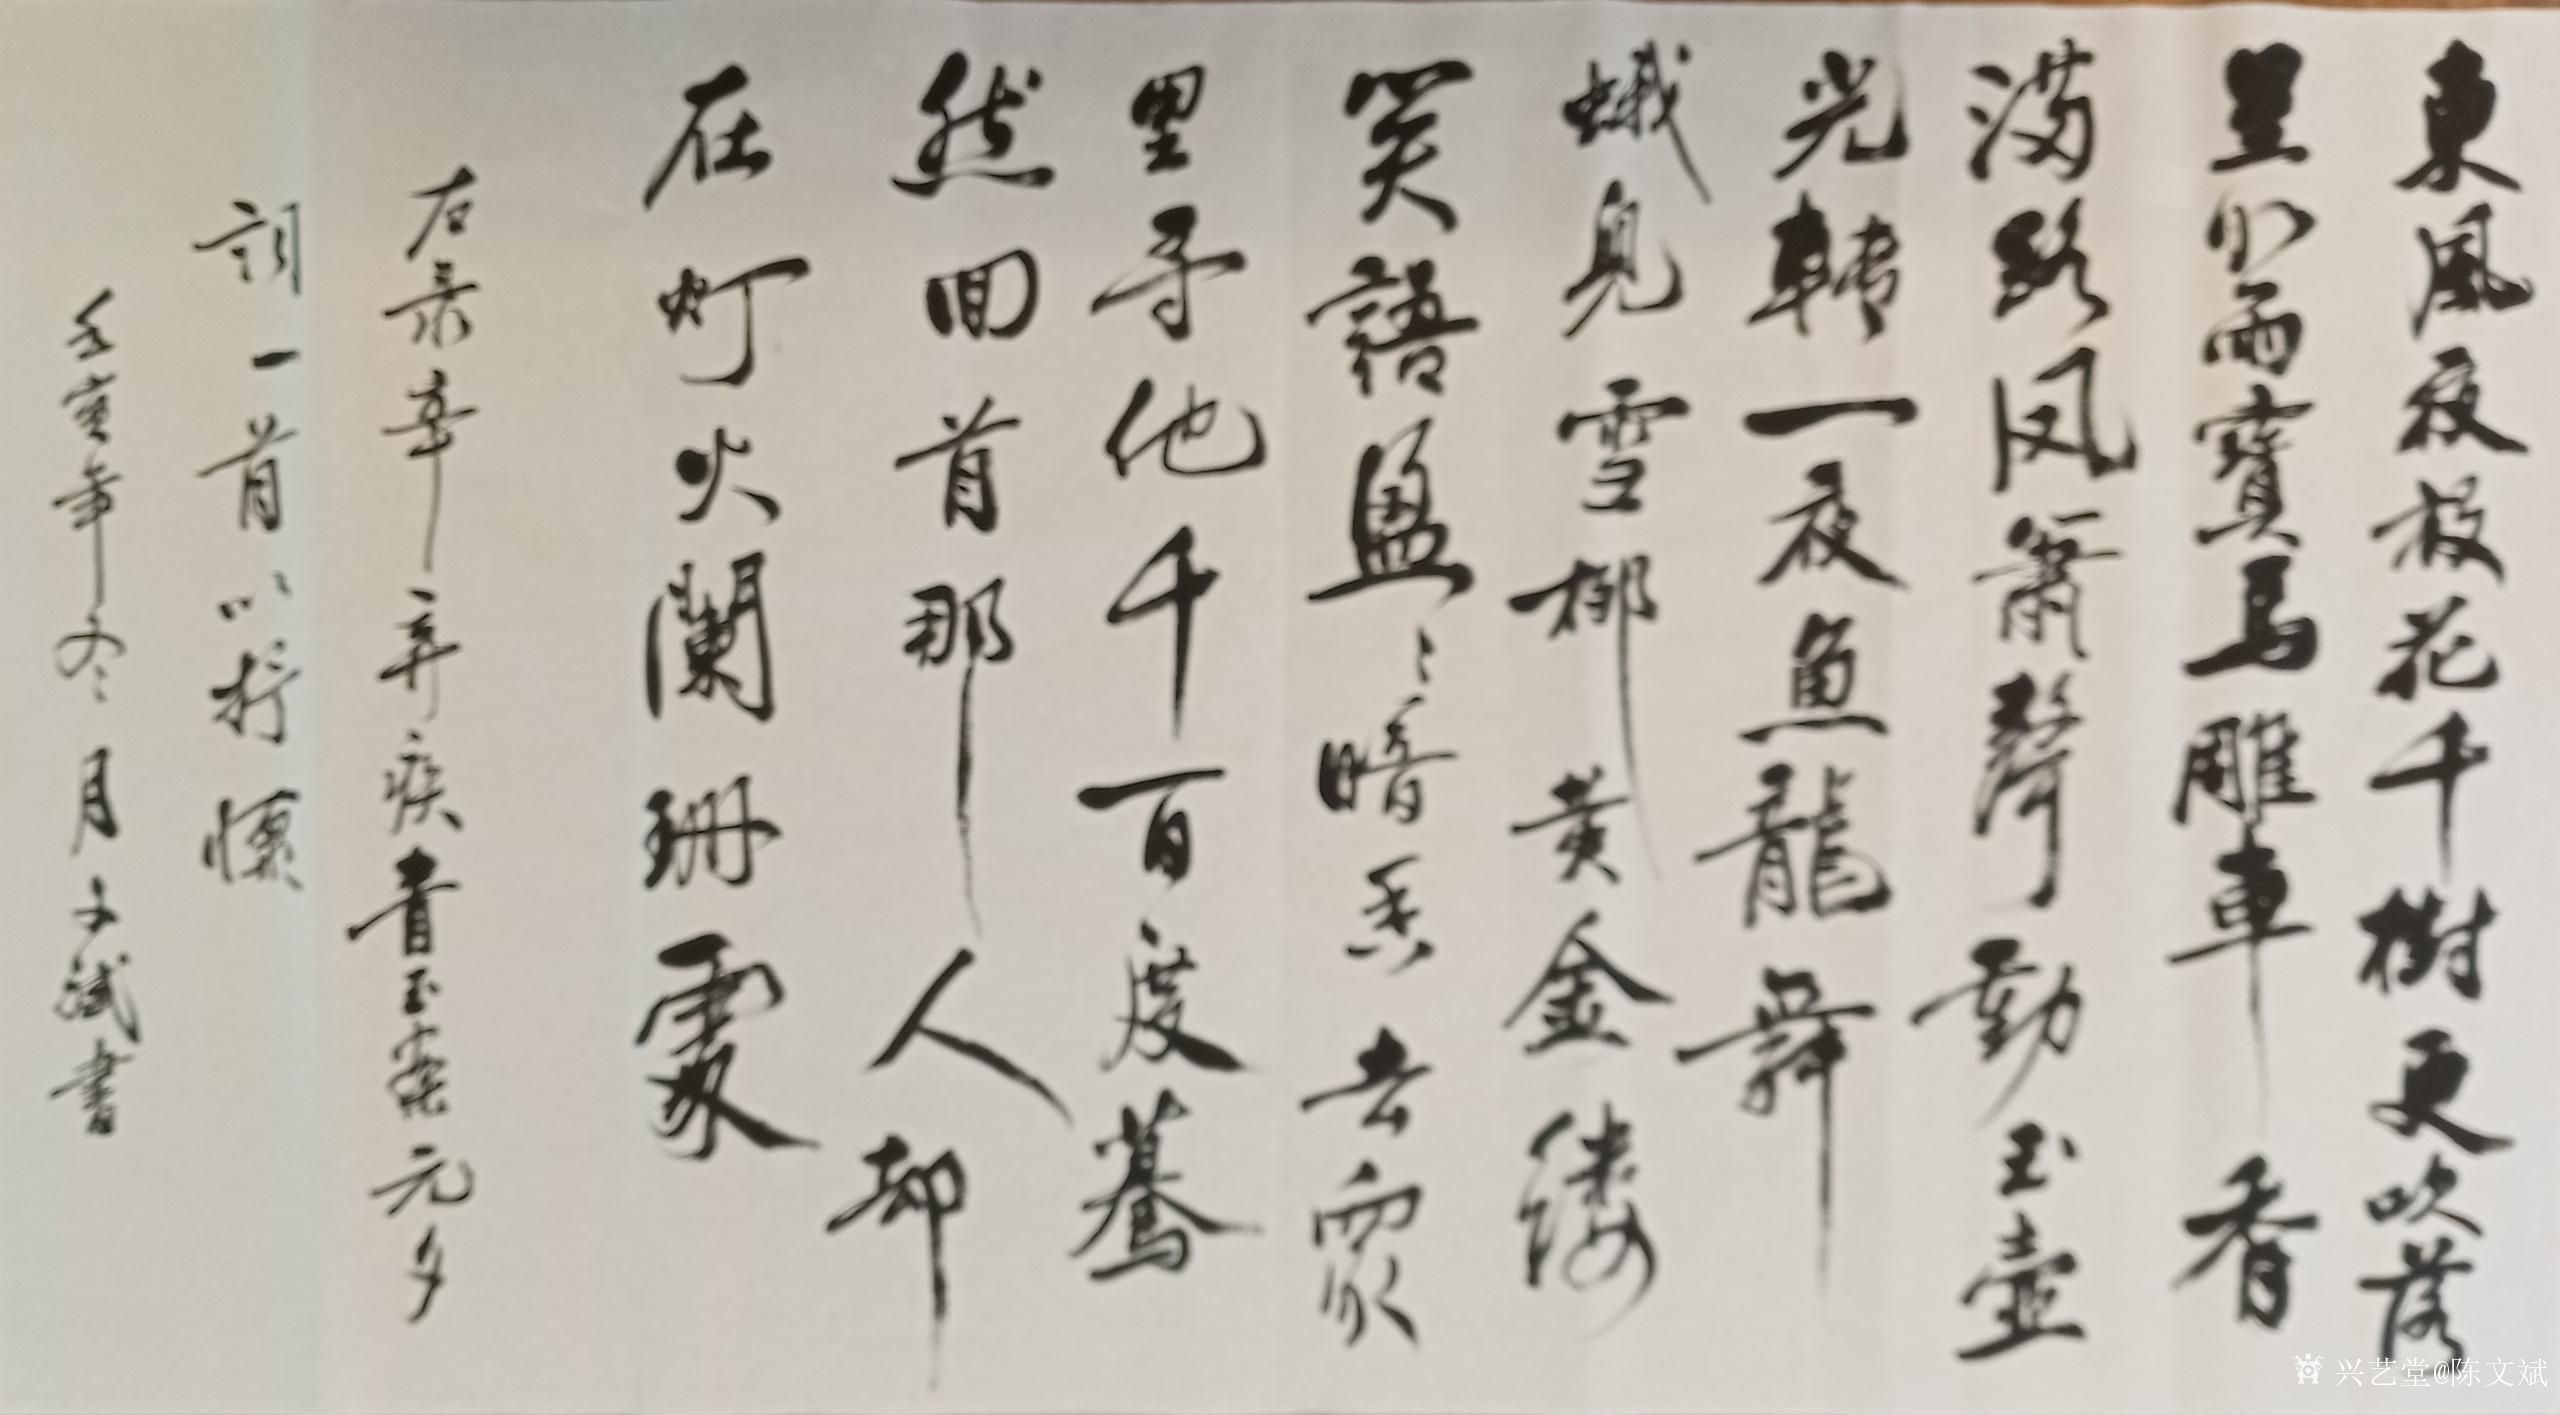 東風夜放花千樹更吹落
星如雨寶馬雕車香
满路凤簫聲動玉壺
光轉一夜魚龍舞
蛾兒雪柳黄金缕
笑語盈々暗香去眾
里寻他千百度驀
然回首那人却
在灯火闌珊處
右录辛弃疾青玉案元夕
词一首以抒懷
壬寅年冬月文斌書
兴艺堂@陈文斌